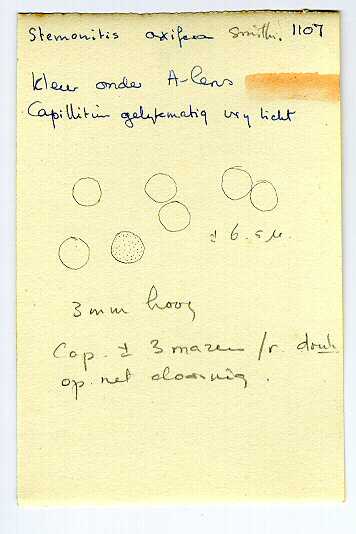 Stemonitis axifera Smithi. 1107
Kleur onder A-lens
Capillitium gelykmatig vry licht
± 6.5 µ.
3 mm hoog
Cap. ± 3 mazen / r.
op. net doornig.